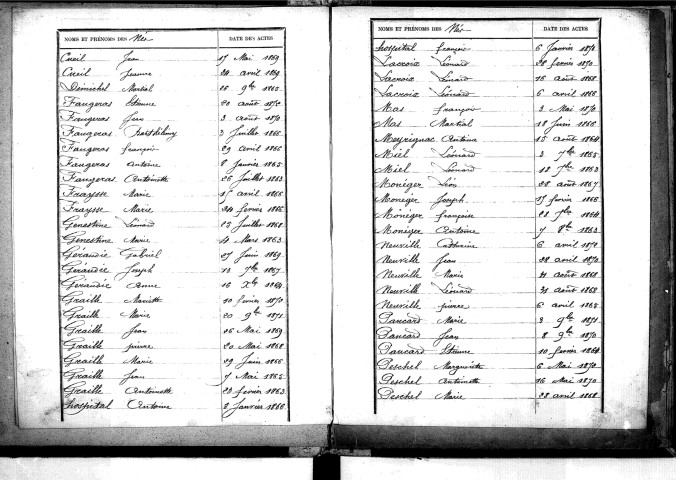 NOMS ET PRÉNOMS DES Nés DATE DES ACTES
Creil Jean 17 Mai 1869
Creil Jeanne 24 avril 1869
Demichel Martial 16 9bre 1862
Faugeras Etienne 20 août 1872
Faugeras Jean 3 août 1870
Faugeras Barthélemy 3 Juillet 1866
Faugeras françois 29 avril 1866
Faugeras Antoine 8 Janvier 1865
Faugeras Antoinette 26 Juillet 1863
Fraysse Marie 15 avril 1868
Fraysse Marie 24 février 1866
Genestine Léonard 23 Juillet 1868
Genestine Marie 4 Mars 1863
Gérandie Gabriel 27 Juin 1869
Gérandie Joseph 13 7bre 1867
Gérandie Anne 16 Xbre 1864
Graille Mariette 10 février 1870
Graille Marie 20 9bre 1871
Graille Jean 16 Mai 1869
Graille pierre 20 Mai 1868
Graille Marie 29 Juin 1866
Graille Jean 7 Mai 1865
Graille Antoinette 22 février 1863
hospital Antoine 2 Janvier 1866
NOMS ET PRÉNOMS DES Nés DATE DES ACTES
hospital françois 6 Janvier 1871
Lacroix Léonard 28 février 1870
Lacroix Léonard 16 août 1868
Lacroix Léonard 6 avril 1866
Mas françois 3 Mai 1870
Mas Martial 28 Juin 1866
Meyrignac Antoine 15 août 1864
Miel Léonard 3 7bre 1865
Miel Léonard 13 7bre 1863
Moneger Léon 28 août 1867
Moneger Joseph 17 février 1866
Moneger françoise 23 7bre 1864
Moneger Antoine 7 8bre 1863
Neuville Catherine 6 avril 1872
Neuville Jean 28 avril 1870
Neuville Marie 21 août 1868
Neuville Léonard 21 août 1868
Neuville pierre 6 avril 1865
Pancard Marie 3 9bre 1871
Pancard Jean 8 9bre 1870
Pancard Etienne 10 février 1864
Peschel Marguerite 6 Mai 1870
Peschel Antoinette 16 Mai 1870
Peschel Marie 28 avril 1868